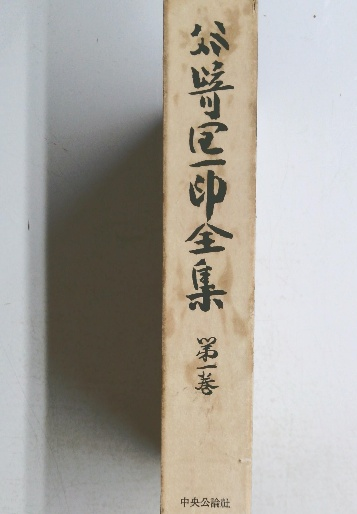 谷崎潤一郎全集
第一巻
中央公論社